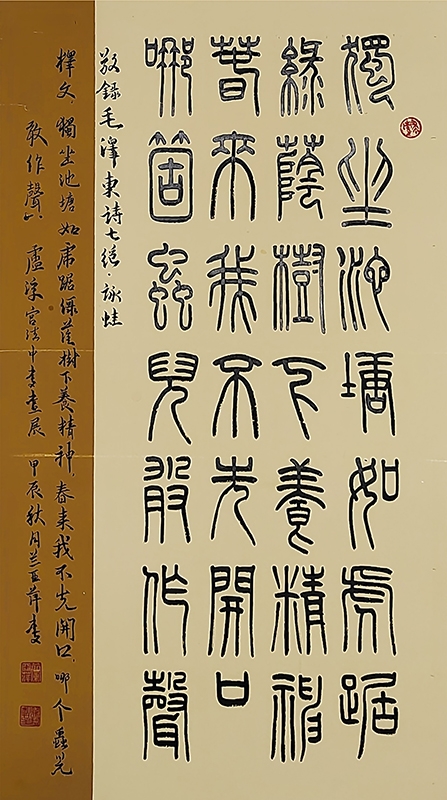 獨坐池塘如虎踞
綠蔭樹下養精神
春來我不先開口
哪箇蟲兒敢作聲
敬錄毛澤東詩七絕·詠蛙
釋文.獨坐池塘如虎踞綠蔭樹下養精神.春来我不先開口.哪个蟲児
敢作聲 甲辰秋月